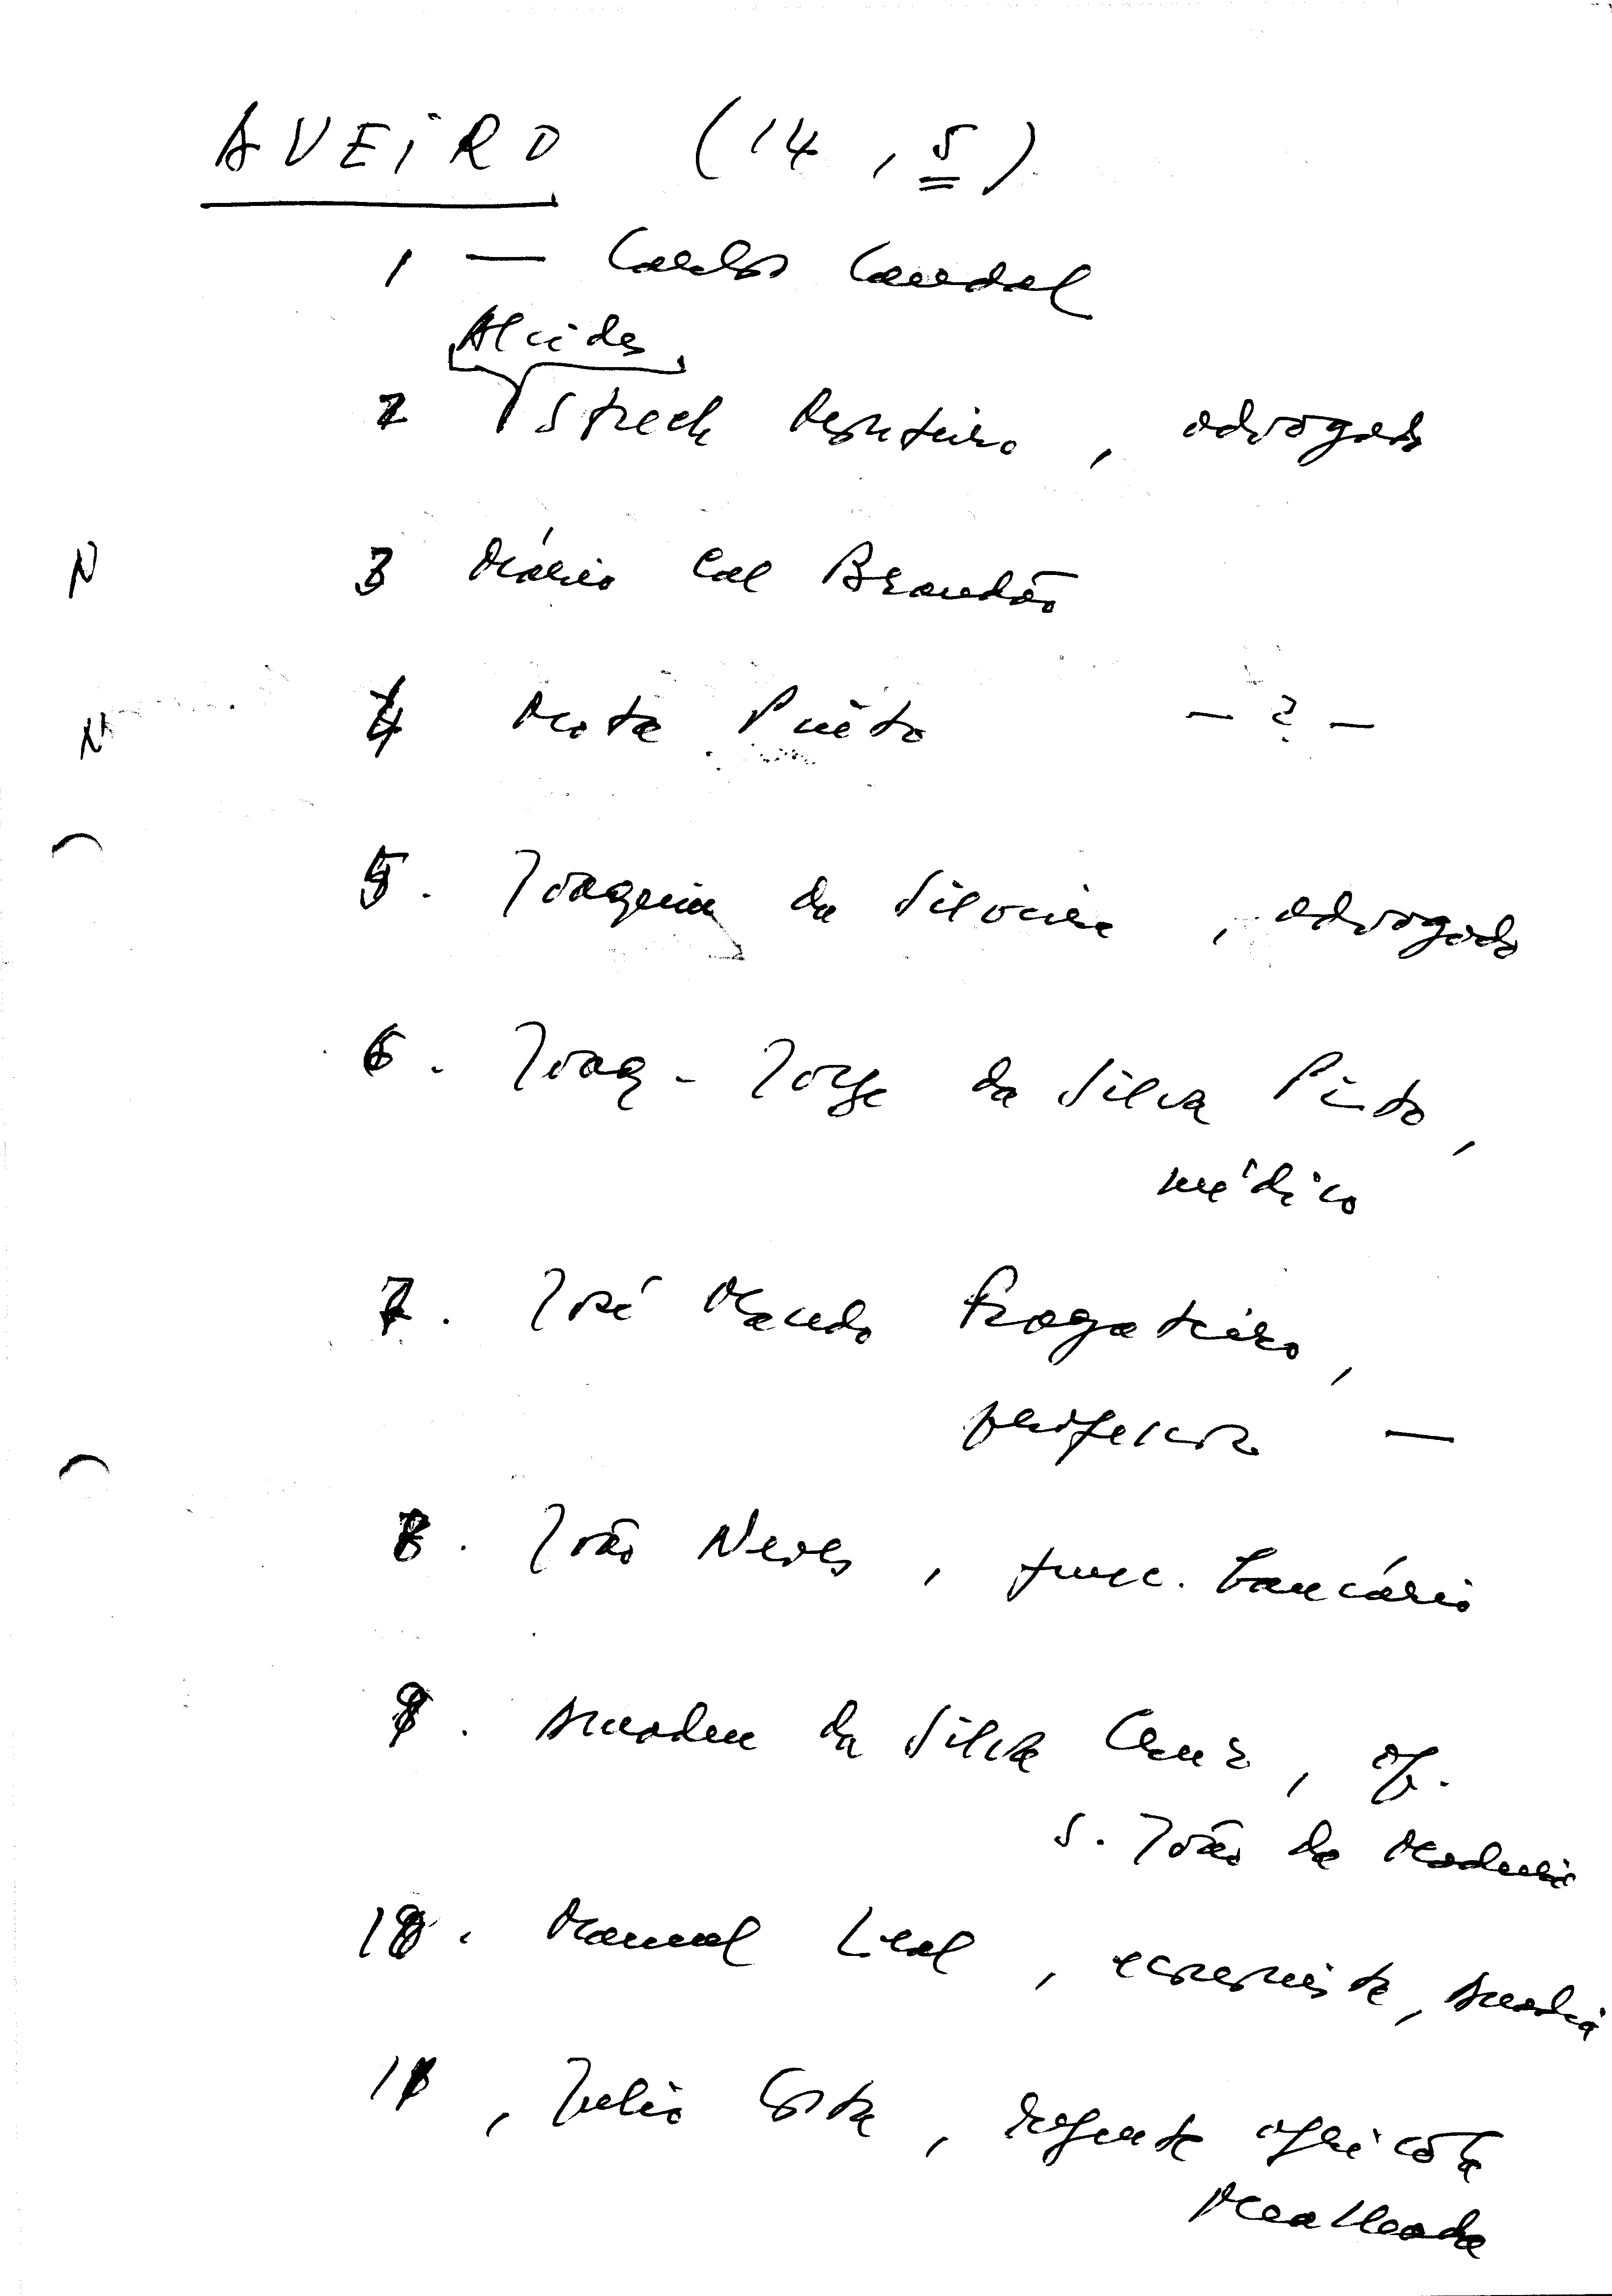 AVEIRO (14, 5)
1 — Carlos Candal
Alcides
2 Strecht Monteiro, advogado
N 3 Mário Cal Brandão
N 4 Mota Pinto — ? —
5. Joaquim da Silveira, advogado
6. Joaq. Jorge da Silva Pinto,
médico
7. José Macedo Fragateiro,
professor —
8. João Neves, func. bancário
9. Amadeu da Silva Cruz, of.
S. João da Madeira
10. Manuel Leal, economista, Anadia
11, Julio Costa, regente agrícola
Mealhada